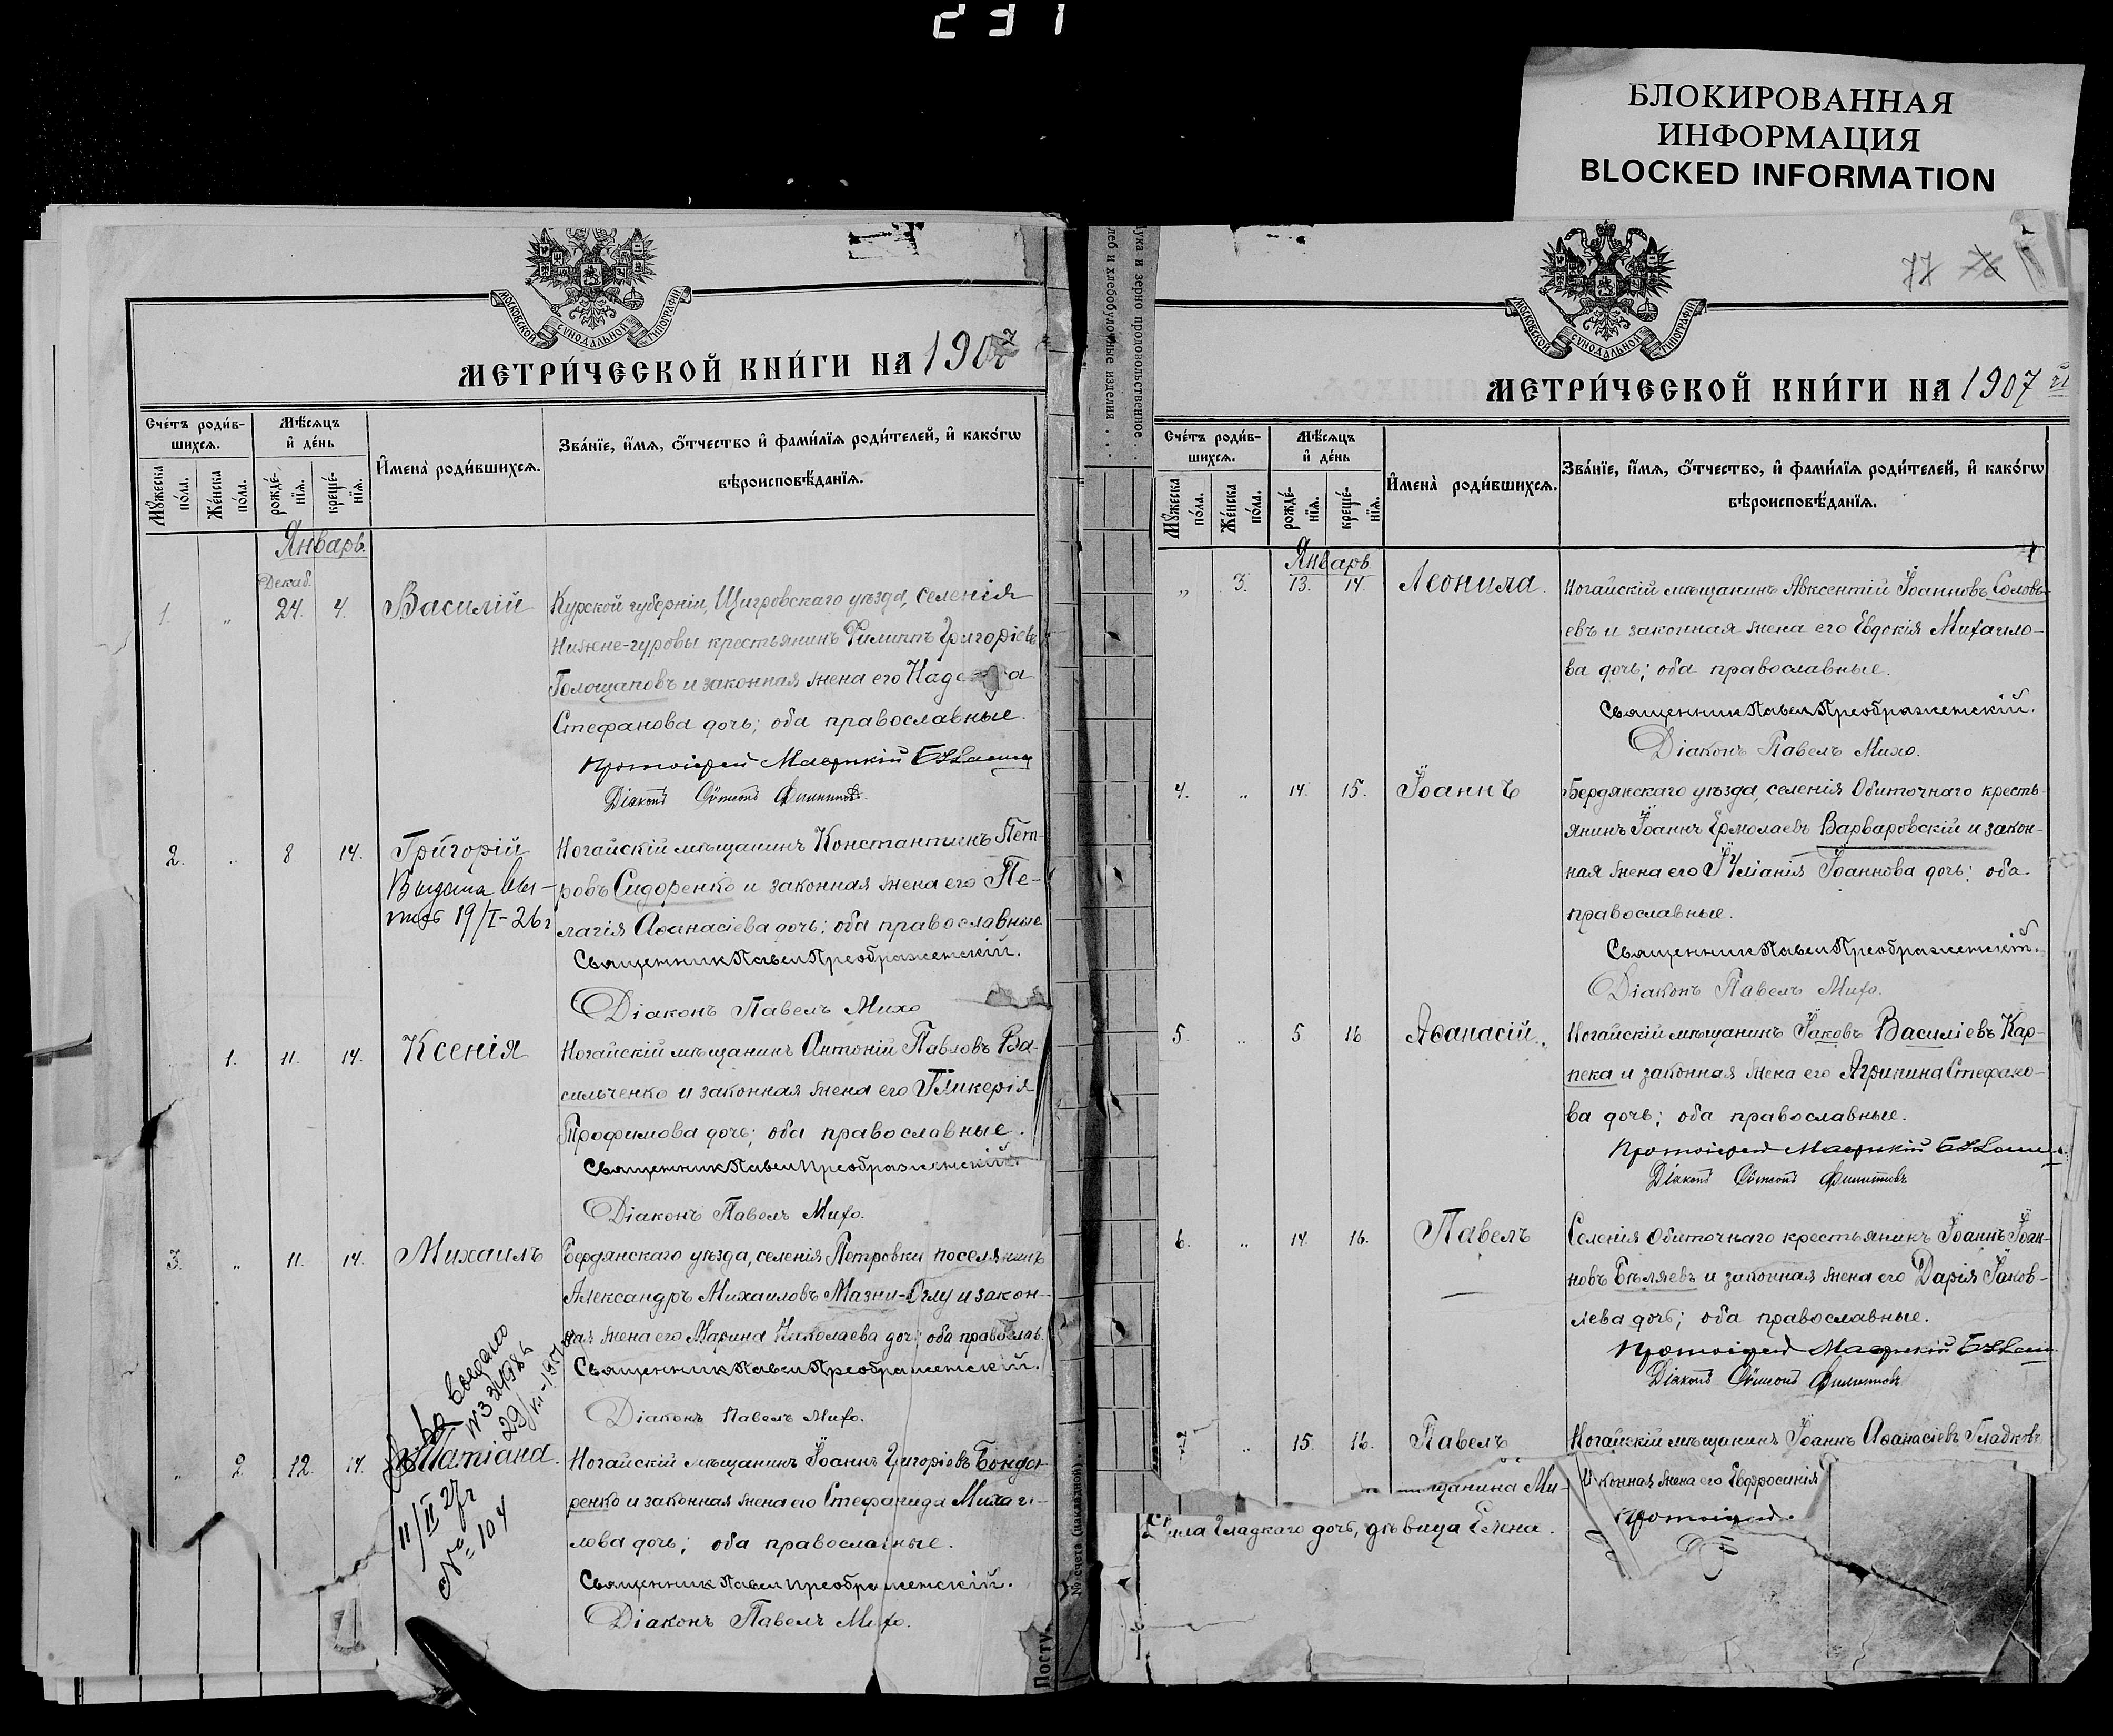 231
БЛОКИРОВАННАЯ
ИНФОРМАЦИЯ
BLOCKED INFORMATION
МОСКОВСКОЙ СУНОДАЛЬНОЙ ТИПОГРАФІИ
МЕТРИ́ЧЕСКОЙ КНИ́ГИ НА 1907
Сче́тъ роди́в-
шихсѧ.
Мѣ́сѧцъ
и҆ де́нь
Мꙋ́жеска по́ла.
Же́нска по́ла.
рожде́-нїѧ.
креще́-нїѧ.
И҆мена̀ роди́вшихсѧ.
Зва́нїе, и҆́мѧ, ѻ҆́тчество и҆ фами́лїѧ роди́телей, и҆ како́гѡ
вѣроисповѣ́данїѧ.
Январь.
Декаб.
1. „ 24. 4. Василій Курской губерніи, Щигровскаго уѣзда, селенія
Нижне-гуровы крестьянинъ Филиппъ Григоріевъ
Голощаповъ и законная жена его
Стефанова дочь; оба православные.
Протоіерей Маврикій
Діаконъ Сѵмеонъ Филипповъ.
2. „ 8 14. Григорій Ногайскій мѣщанинъ Константинъ Пет-
ровъ Сидоренко и законная жена его Пе-
лагія Аѳанасіева дочь: оба православные
19/I-26г
Священник Павел Преображенскій.
Діаконъ Павелъ Михо
1. 11. 14. Ксенія Ногайскій мѣщанинъ Антоній Павловъ Ва-
сильченко и законная жена его Гликерія
Трофимова дочь; оба православные.
Священник Павел Преображенскій.
Діаконъ Павелъ Михо.
3. „ 11. 14. Михаилъ Бердянскаго уѣзда, селенія Петровки поселянинъ
Александръ Михаиловъ Мазни-Оглу и закон-
ная жена его Марина Николаева доч; оба православ.
Священник Павел Преображенскій.
Діаконъ Павелъ Михо.
„ 2 12. 14. Татіана. Ногайскій мѣщанинъ Іоаннъ Григоріевъ Бонда-
ренко и законная жена его Стефанида Михаи-
лова дочь; оба православные.
11/II 27г
№ 104
Священник Павел Преображенскій.
Діаконъ Павелъ Михо.
лeб и хлебобулочные изделия . . .
ука и зерно продовольственное .
№ счета (накладной)
Посту
77
МОСКОВСКОЙ СУНОДАЛЬНОЙ ТИПОГРАФІИ
МЕТРИ́ЧЕСКОЙ КНИ́ГИ НА 1907
Сче́тъ роди́в-
шихсѧ.
Мѣ́сѧцъ
и҆ де́нь
Мꙋ́жеска по́ла.
Же́нска по́ла.
рожде́-нїѧ.
креще́-нїѧ.
И҆мена̀ роди́вшихсѧ.
Зва́нїе, и҆́мѧ, ѻ҆́тчество, и҆ фами́лїѧ роди́телей, и҆ како́гѡ
вѣроисповѣ́данїѧ.
Январь.
„ 3. 13. 14. Леонила. Ногайскій мѣщанинъ Авксентій Іоанновъ Соловь-
евъ и законная жена его Евдокія Михаило-
ва дочь; оба православные.
Священник Павел Преображенскій.
Діаконъ Павелъ Михо.
4. „ 14. 15. Іоаннъ Бердянскаго уѣзда, селенія Обиточнаго кресть-
янинъ Іоаннъ Ермолаевъ Варваровскій и закон-
ная жена его Іуліанія Іоаннова дочь: оба
православные.
Священник Павел Преображенскій.
Діаконъ Павелъ Михо.
5. „ 5 16 Аѳанасій. Ногайскій мѣщанинъ Іаковъ Василіевъ Кар-
пека и законная жена его Агрипина Стефано-
ва дочь; оба православные.
Протоіерей Маврикій
Діаконъ Сѵмеонъ Филипповъ
6. „ 14. 16. Павелъ Селенія Обиточнаго крестьянинъ Іоаннъ Іоан-
новъ Бѣляевъ и законная жена его Дарія Іаков-
лева дочь; оба православные.
Протоіерей Маврикій
Діаконъ Сѵмеонъ Филипповъ
7 „ 15. 16. Павелъ Ногайскій мѣщанинъ Іоаннъ Аѳанасіевъ Гладковъ
щанина Ми- конная жена его Евфросинія
Протоіерей
ила Гладкаго дочь, дѣвица Елена.